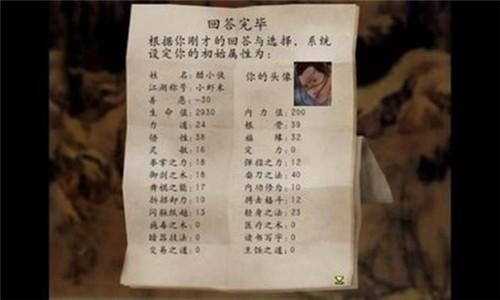 回答完毕
根据你刚才的回答与选择，系统
设定你的初始属性为：
姓 名：醋小侠 你的头像
江湖称号：小虾米
善 恶：-30
生 命 值：2930 内 力 值：200
力 道：24 根 骨：39
悟 性：38 福 缘：32
灵 敏：16 定 力：0
拳掌之力：18 弹指之力：12
御剑之术：18 磨刀之法：40
弄棍之能：17 内功修为：10
拆招卸力：10 搏击格斗：12
闪躲纵越：13 轻身之法：23
施毒之术：0 医疗之术：0
暗器技法：0 读书写字：0
交易之道：0 烹饪之道：0